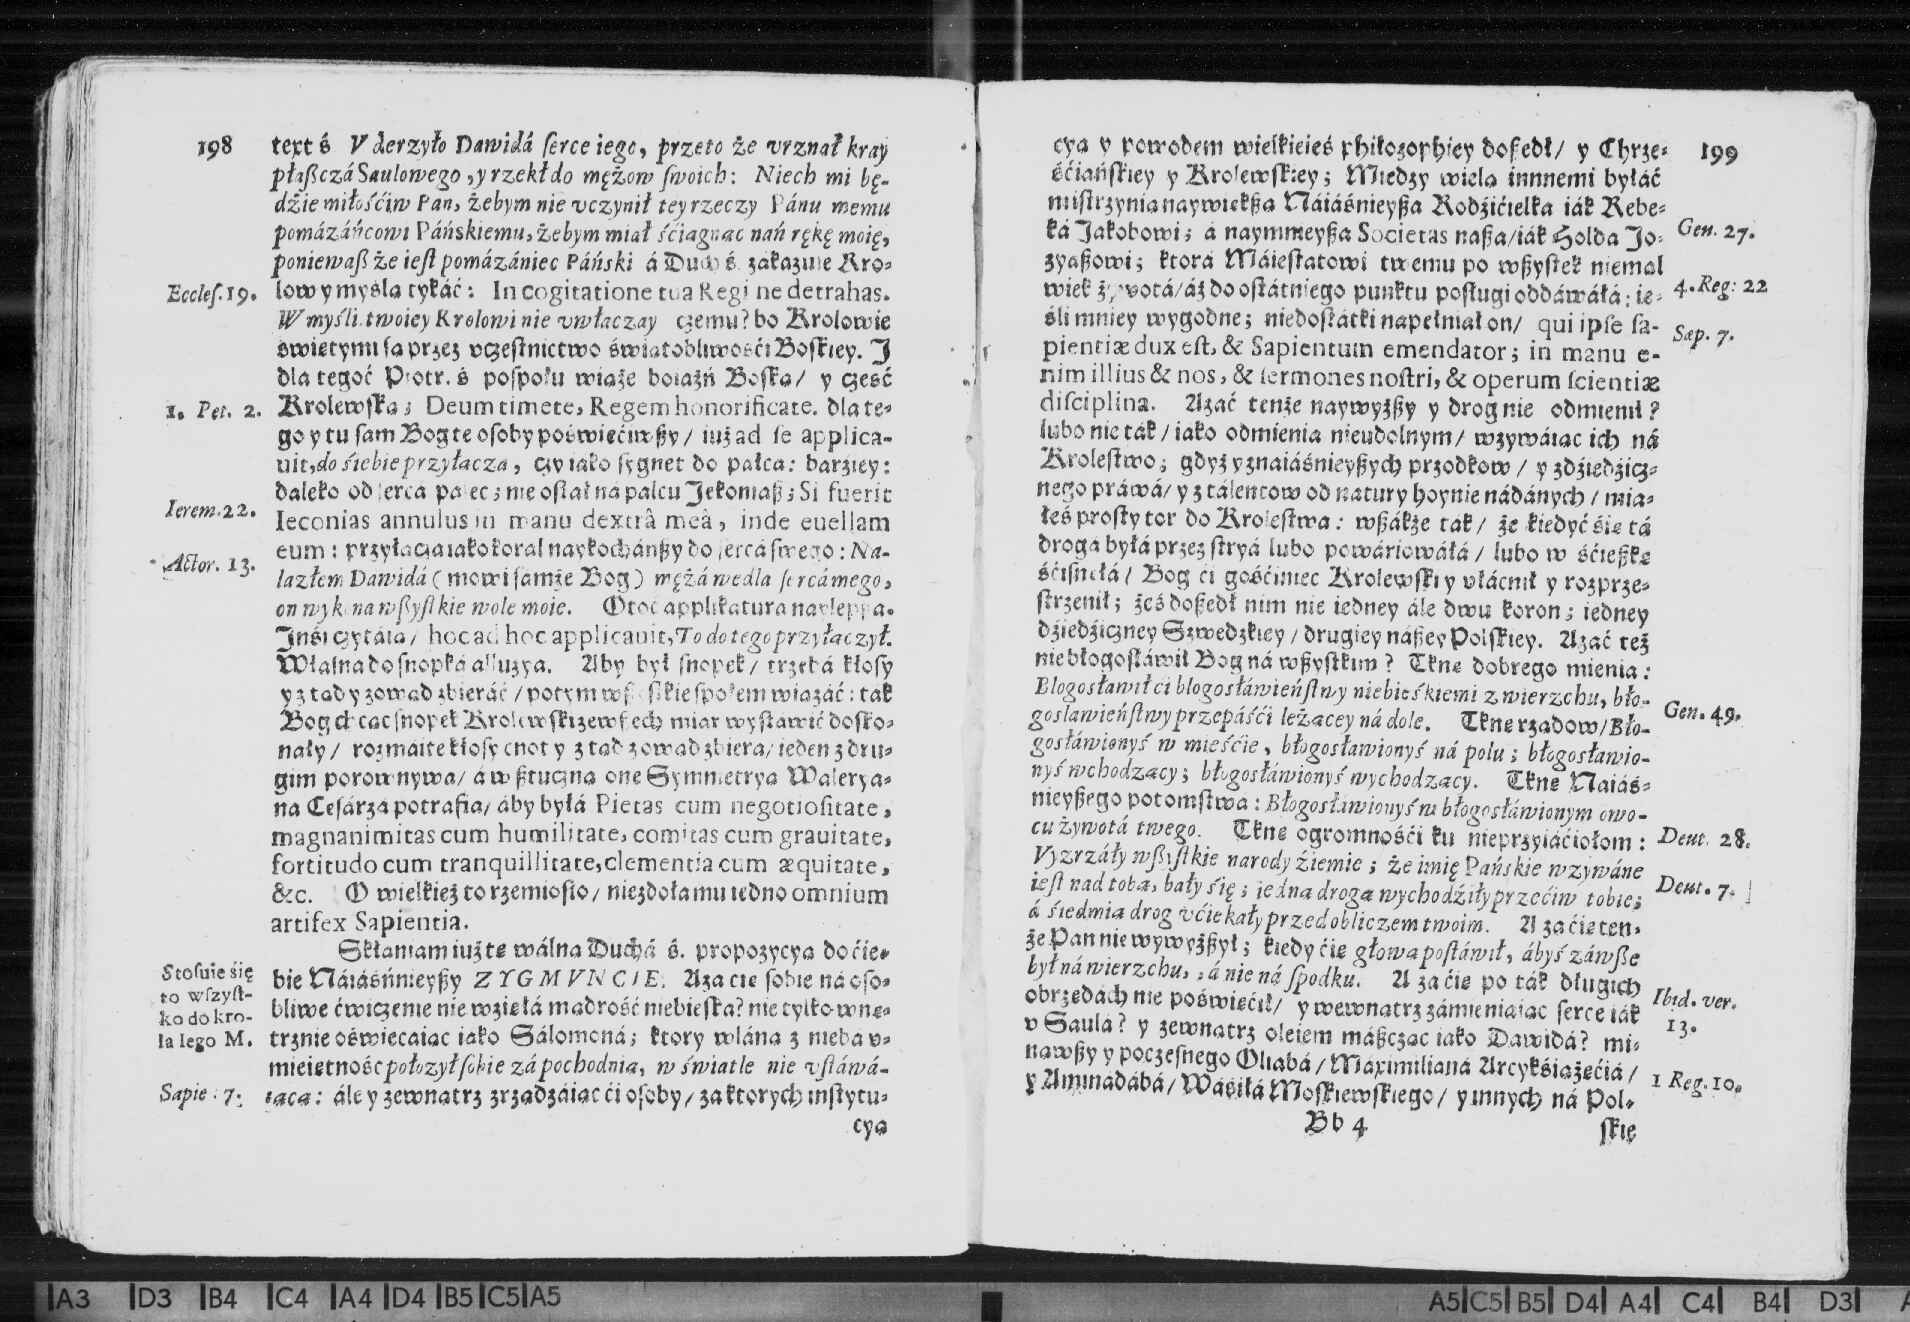 198
text ś Vderzyło Dawidá ſerce iego, przeto że vrznał kray
płaſzczá Saulowego, y rzekł do mężow ſwoich: Niech mi bę-
dźie miłośćiw Pan, żebym nie vczynił tey rzeczy Pánu memu
pomázáńcowi Páńskiemu, żebym miał śćiągnąć nań rękę moię,
ponieważ że ieſt pomázániec Páński á Duch ś. zákázuie Kro-
Eccleſ. 19.
lowy myślą tykáć: In cogitatione tua Regi ne detrahas.
W myśli twoiey Krolowi nie vwłaczay czemu? bo Krolowie
świętymi ſą przez vczeſtnictwo świątobliwośći Boſkiey. J
dla tegoć Piotr. ś poſpołu wiąże boiaźń Boſką/ y cześć
1. Pet. 2.
Krolewſką; Deum timete, Regem honorificate. dla te-
go y tu ſam Bog te oſoby poświęćiwſzy/ iuż ad ſe applica-
uit, do śiebie przyłącza, czy iako ſygnet do pálca: bárźiey:
daleko od ſerca palec; nie oſtał ná palcu Jekoniaſz; Si fuerit
Ierem. 22.
Ieconias annulus in manu dextrâ meâ, inde euellam
eum: przyłącza iako koral naykochánſzy do ſercá ſwego: Na-
Actor. 13.
lazłem Dawidá (mowi ſamże Bog) mężá wedla ſercá mego,
on wykona wſzyſtkie wole moie. Otoć applikatura naylepſza.
Jnśi czytáią/ hoc ad hoc applicauit, To do tego przyłączył.
Właſna do ſnopká alluzya. Aby był ſnopek/ trzebá kłoſy
y z tąd y zowąd zbieráć/ potym wſzyſtkie ſpołem wiązáć: ták
Bog chcąc ſnopek Krolewſki zewſzech miar wyſtawić doſko-
nały/ rozmáite kłoſy cnot y z tąd zowąd zbiera/ ieden z dru-
gim porownywa/ á w ſztuczną onę Symmetryą Walerya-
na Ceſárzá potrafia/ áby byłá Pietas cum negotioſitate,
magnanimitas cum humilitate, comitas cum grauitate,
fortitudo cum tranquillitate, clementia cum æquitate,
&c. O wielkież to rzemioſło/ niezdoła mu iedno omnium
artifex Sapientia.
Skłaniam iuż tę wálną Duchá ś. propozycyą do ćie-
Stoſuie śię
to wſzyſt-
ko do kro-
la Iego M.
bie Náiáśńnieyſzy ZYGMVNCIE. Aza ćie ſobie ná oſo-
bliwe ćwiczenie nie wźięłá mądrość niebieſka? nie tylko wnę-
trznie oświecáiąc iáko Sálomoná; ktory wláną z niebá v-
mieiętność położył ſobie zá pochodnią, w świátle nie vſtáwá-
Sapie: 7.
iącą: ále y zewnątrz zrządzáiąć ći oſoby/ zá ktorych inſtytu-
cya
199
cyą y powodem wielkieieś philozophiey doſzedł/ y Chrze-
śćiáńſkiey y Krolewſkiey; Między wielą innnemi byłáć
miſtrzynią naywiękſza Náiáśnieyſza Rodźićielka iák Rebe-
Gen. 27.
ká Jakobowi; á naymnieyſza Societas naſzá/ iák Holda Jo-
zyaſzowi; ktora Máieſtatowi twemu po wſzyſtek niemal
4. Reg: 22
wiek żywotá/ áż do oſtátniego punktu poſługi oddáwáłá: ie-
śli mniey wygodne; niedoſtátki nápełniał on/ qui ipſe ſa-
Sap. 7.
pientiæ dux eſt, & Sapientum emendator; in manu e-
nim illius & nos, & ſermones noſtri, & operum ſcientiæ
diſciplina. Azać tenże naywyżſzy y drog nie odmienił?
lubo nie ták/ iáko odmienia nieudolnym/ wzywáiąc ich ná
Kroleſtwo; gdyż y z naiáśnieyſzych przodkow/ y z dźiedźicz-
nego práwá/ y z tálentow od nátury hoynie nádánych/ mia-
łeś proſty tor do Kroleſtwa: wſzákże ták/ że kiedyć śię tá
drogá byłá przez ſtryá lubo powáriowáłá/ lubo w śćieſzkę
śćiſnęłá/ Bog ći gośćiniec Krolewſki y vłácnił y rozprze-
ſtrzenił; żeś doſzedł nim nie iedney ále dwu koron; iedney
dźiedźiczney Szwedzkiey/ drugiey náſzey Polſkiey. Azać też
nie błogoſłáwił Bog ná wſzyſtkim? Tknę dobrego mienia:
Blogosławił ći blogosłáwieńſtwy niebieſkiemi z wierzchu, bło-
Gen. 49.
goslawieńſtwy przepáśći leżącey ná dole. Tknę rządow/ Bło-
gosłáwionyś w mieśćie, błogosławionyś ná polu; błogosławio-
nyś wchodzący; błogosłáwionyś wychodzący. Tknę Naiáś-
nieyſzego potomſtwa: Błogosłáwionyś w błogosłáwionym owo-
cu żywotá twego. Tknę ogromnośći ku nieprzyiáćiołom:
Deut. 28.
Vyzrzáły wſzyſtkie narody źiemie; że imię Pańskie wzywáne
ieſt nad tobą, bały śię; iedną drogą wychodźiły przećiw tobie;
Deut. 7.
á śiedmią drog vćiekały przed obliczem twoim. A za ćię ten-
że Pan nie wywyżſzył; kiedy ćię głową poſtáwił, ábyś záwſze
był ná wierzchu, á nie ná ſpodku. A za ćię po ták długich
Ibid. ver.
13.
obrzędách nie poświęćił/ y wewnątrz zámieniáiąc ſerce iák
v Saulá? y zewnątrz oleiem máſzcząc iáko Dawidá? mi-
nąwſzy y poczeſnego Oliabá/ Máximilianá Arcykśiążęćiá/
1 Reg. 10.
y Aminadábá/ Wáśiłá Moſkiewſkiego/ y innych ná Pol-
Bb 4
ſkie
A3 D3 B4 C4 A4 D4 B5 C5 A5
A5 C5 B5 D4 A4 C4 B4 D3